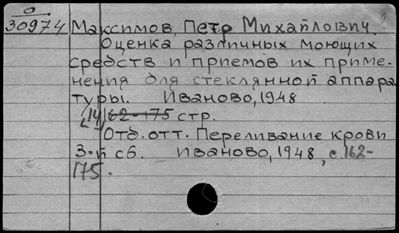 О
30974 Максимов, Петр Михайлович.
Оценка различных моющих
средств и приемов их приме-
нения для стеклянной аппара
туры. Иваново, 1948
[14] 62-175 стр.
Отд. отт. Переливание крови
3-й сб. Иваново, 1948, с 162-
175.